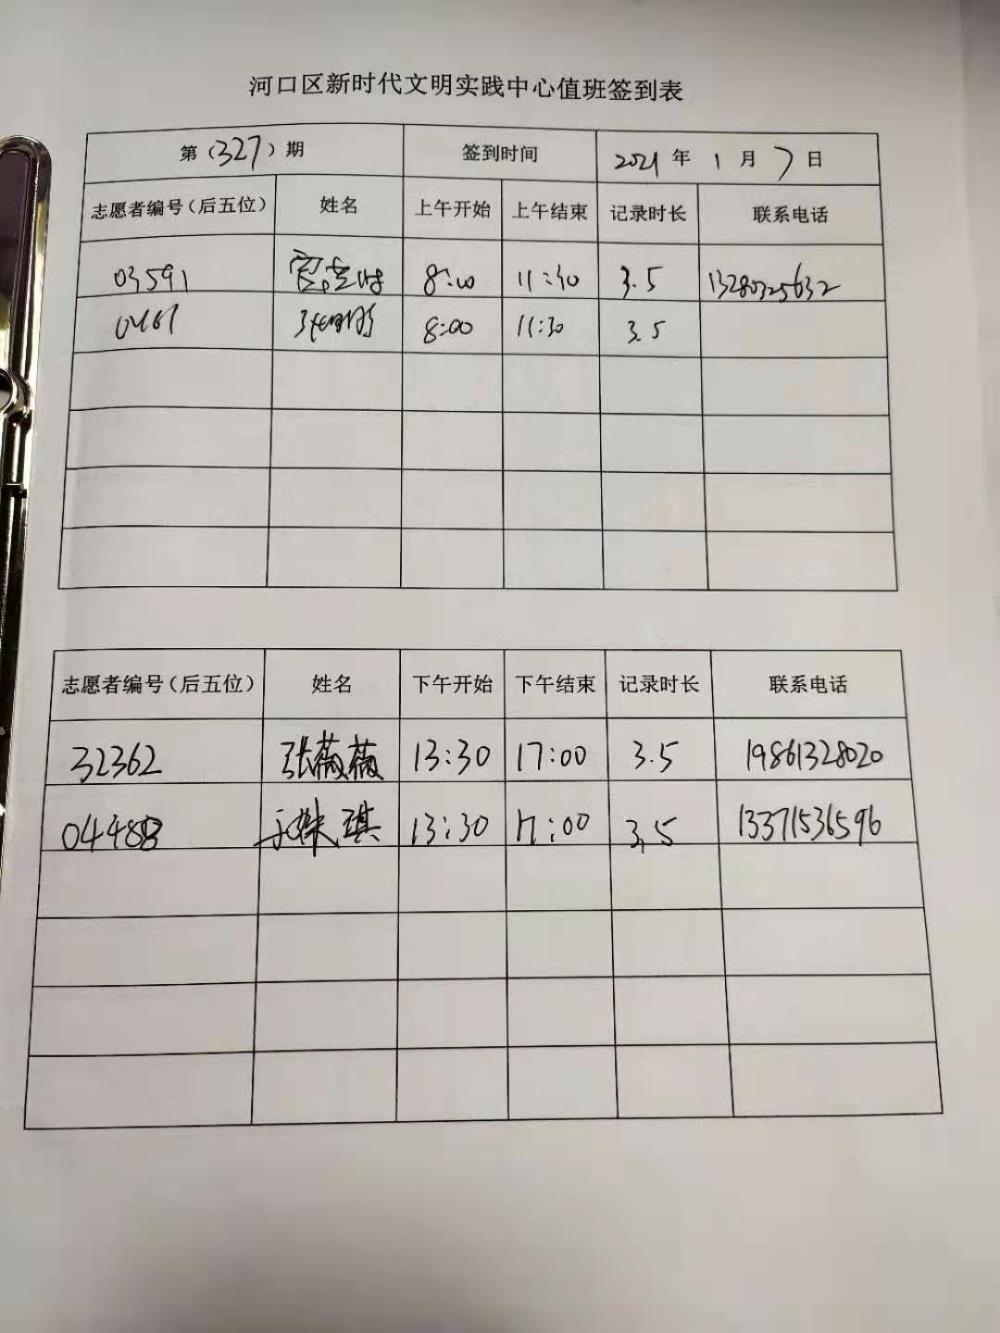 河口区新时代文明实践中心值班签到表
第（327）期 签到时间 2021 年 1 月 7 日
志愿者编号（后五位） 姓名 上午开始 上午结束 记录时长 联系电话
03591 8:00 11:30 3.5 13280325632
8:00 11:30 3.5
志愿者编号（后五位） 姓名 下午开始 下午结束 记录时长 联系电话
32362 张薇薇 13:30 17:00 3.5 19861328020
04488 13:30 17:00 3.5 13371536596